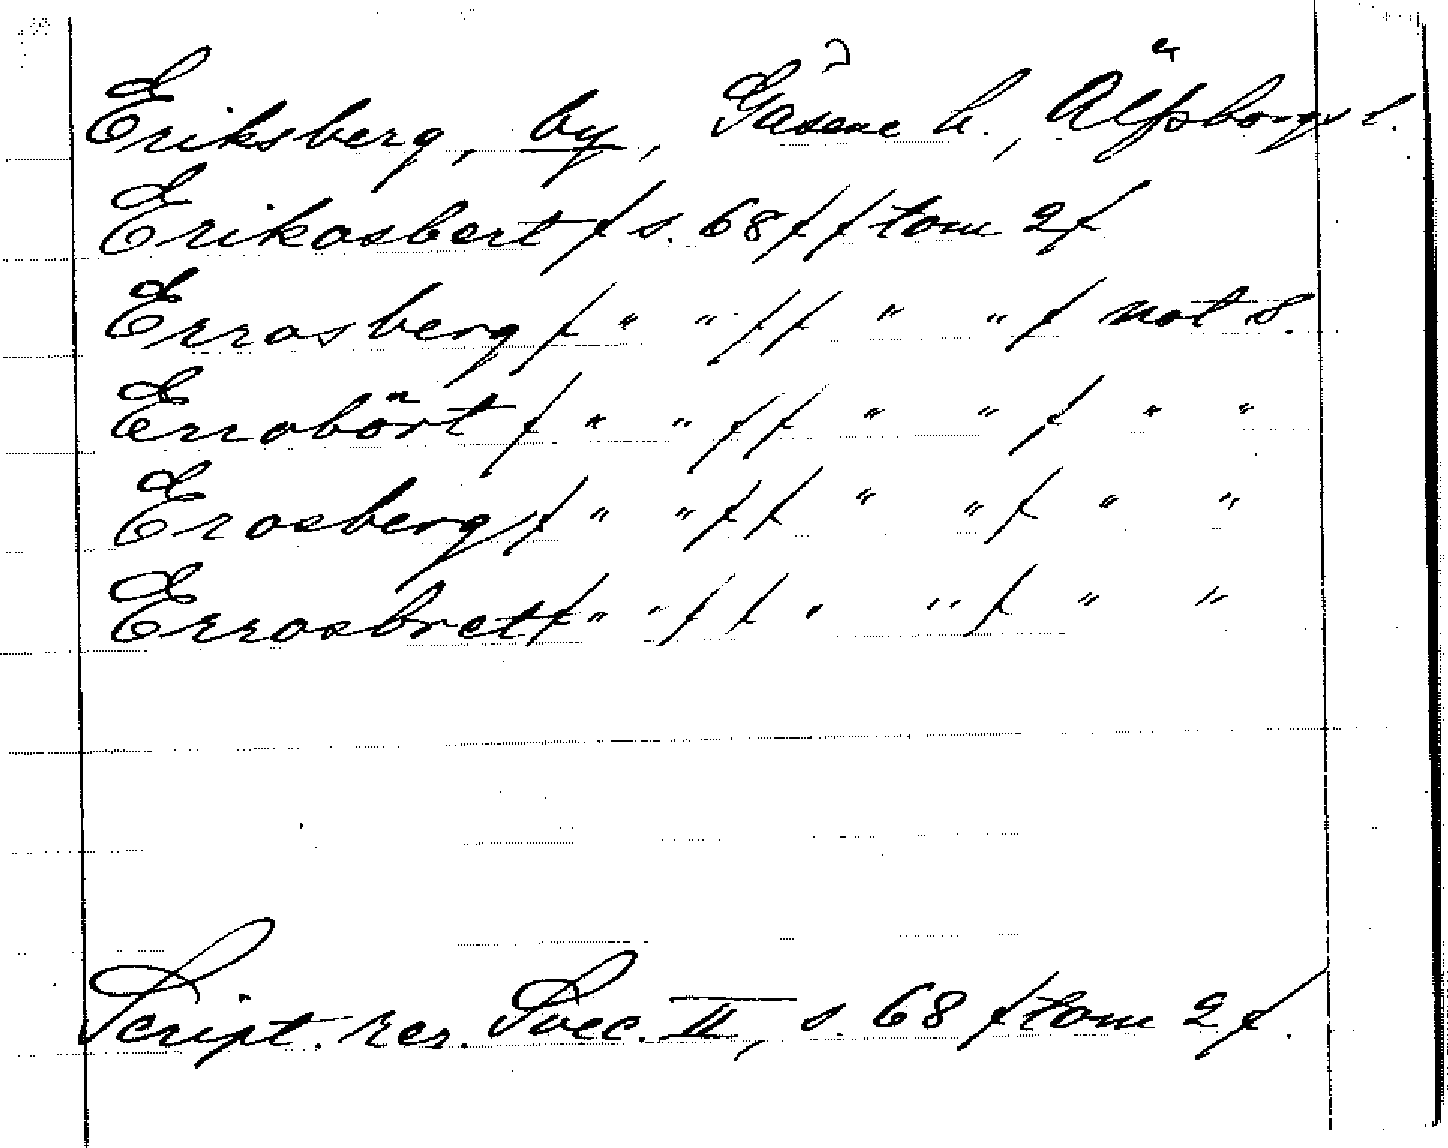 Eriksberg, by, Gäsene h., Älfsborgs l.
Erikasbert / s. 68 / / tom 2 /
Errasberg / " " / / " " / not s.
Errabört / " " / / " " / " "
Erasberg / " " / / " " / " "
Errasbret / " " / / " " / " "
Script. rer. Svec. II, s. 68 / tom 2 /.